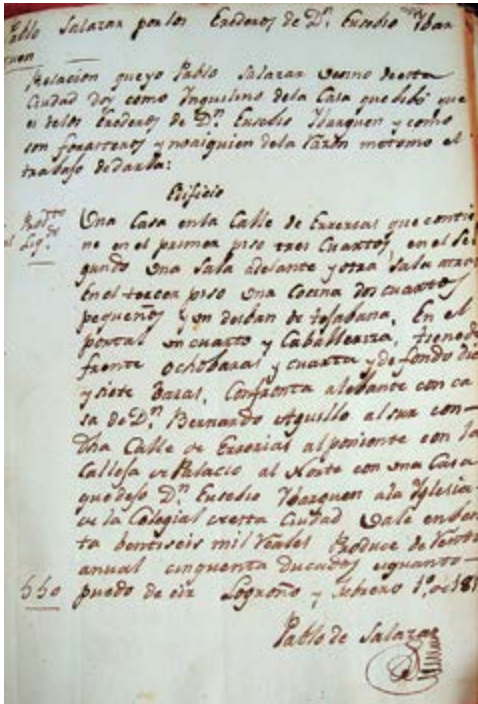 Pablo Salazar por los Erederos de Dn. Eusebio Ybar
guen
Relacion que yo Pablo Salazar vecino de esta
Ciudad doy como Ynquilino de la Casa que bibo que
es de los Erederos de Dn. Eusebio Ybarguen y como
son forasteros y no ai quien de la Razon me tomo el
trabajo de darla:
Edificio
Una Casa en la Calle de Errerias que contie
ne en el primer piso tres Cuartos, en el Se
gundo una Sala adelante y otra Sala atras
En el tercer piso una Cocina dos cuartos
pequeños y un desban de tejabana, En el
portal un cuarto y Caballeriza, tiene de
frente ocho baras y cuarta y de fondo diez
y siete Baras, Confronta a lebante con ca
sa de Dn. Bernardo Aguillo al sur con
dha Calle de Errerias al poniente con la
Calleja de Palacio al Norte con una Casa
que dejo Dn. Eusebio Ybarguen a la Yglesia
de la Colegial de esta Ciudad Vale en ben
ta beintiseis mil Reales Produce de Renta
anual cinquenta ducados es quanto
550 puedo de cir Logroño y Febrero 1º. de 181
Pablo de Salazar